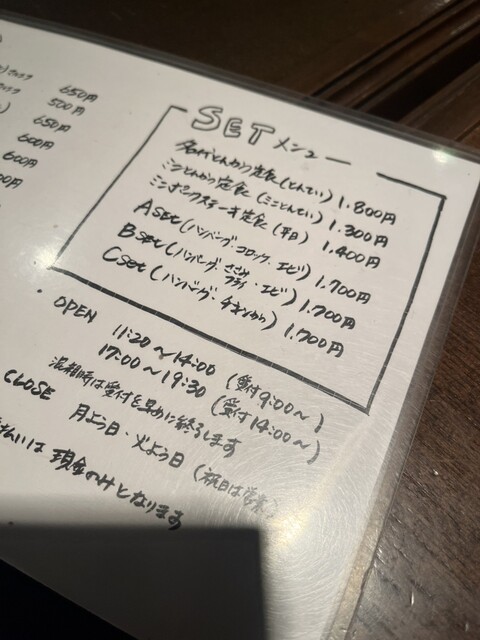 650円
500円
650円
600円
600円
SETメニュー
名代とんかつ定食(とんてい) 1.800円
ミニとんかつ定食(ミニとんてい) 1.300円
ミニポークステーキ定食(平日) 1.400円
A set(ハンバーグ・コロッケ・エビ) 1.700円
B set(ハンバーグ・ささみフライ・エビ) 1.700円
C set(ハンバーグ・チキンかつ) 1.700円
・OPEN 11:20～14:00 (受付9:00～)
17:00～19:30 (受付14:00～)
混雑時は受付を早めに終了します
CLOSE 月よう日・火よう日 (祝日は営業)
払いは現金のみとなります